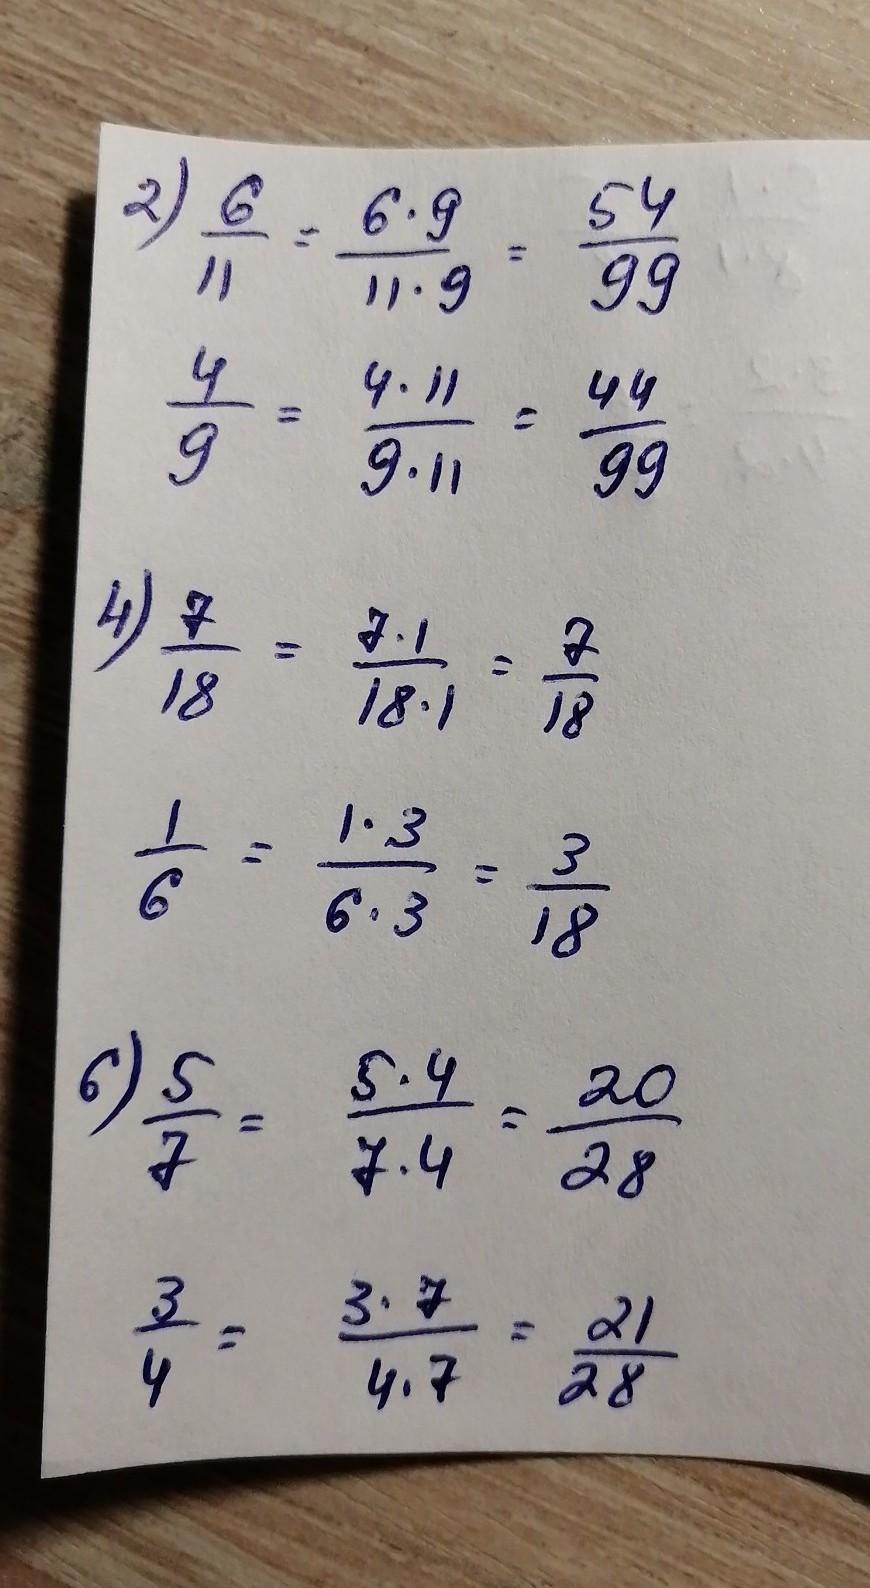 2) 6/11 = 6·9/11·9 = 54/99
4/9 = 4·11/9·11 = 44/99
4) 7/18 = 7·1/18·1 = 7/18
1/6 = 1·3/6·3 = 3/18
6) 5/7 = 5·4/7·4 = 20/28
3/4 = 3·7/4·7 = 21/28